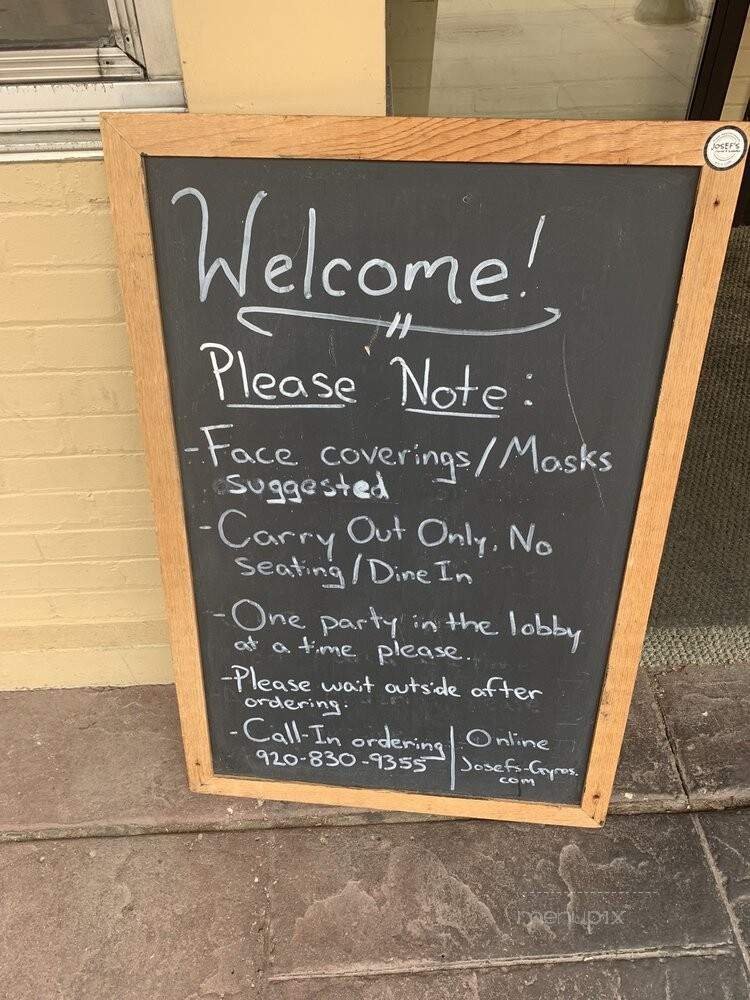 JOSEF'S
Welcome!
Please Note:
- Face coverings/Masks
suggested
- Carry Out Only, No
Seating/Dine In
- One party in the lobby
at a time please.
- Please wait outside after
ordering.
- Call-In ordering | Online
920-830-9355 | Josefs-Gyros.
com
menupix